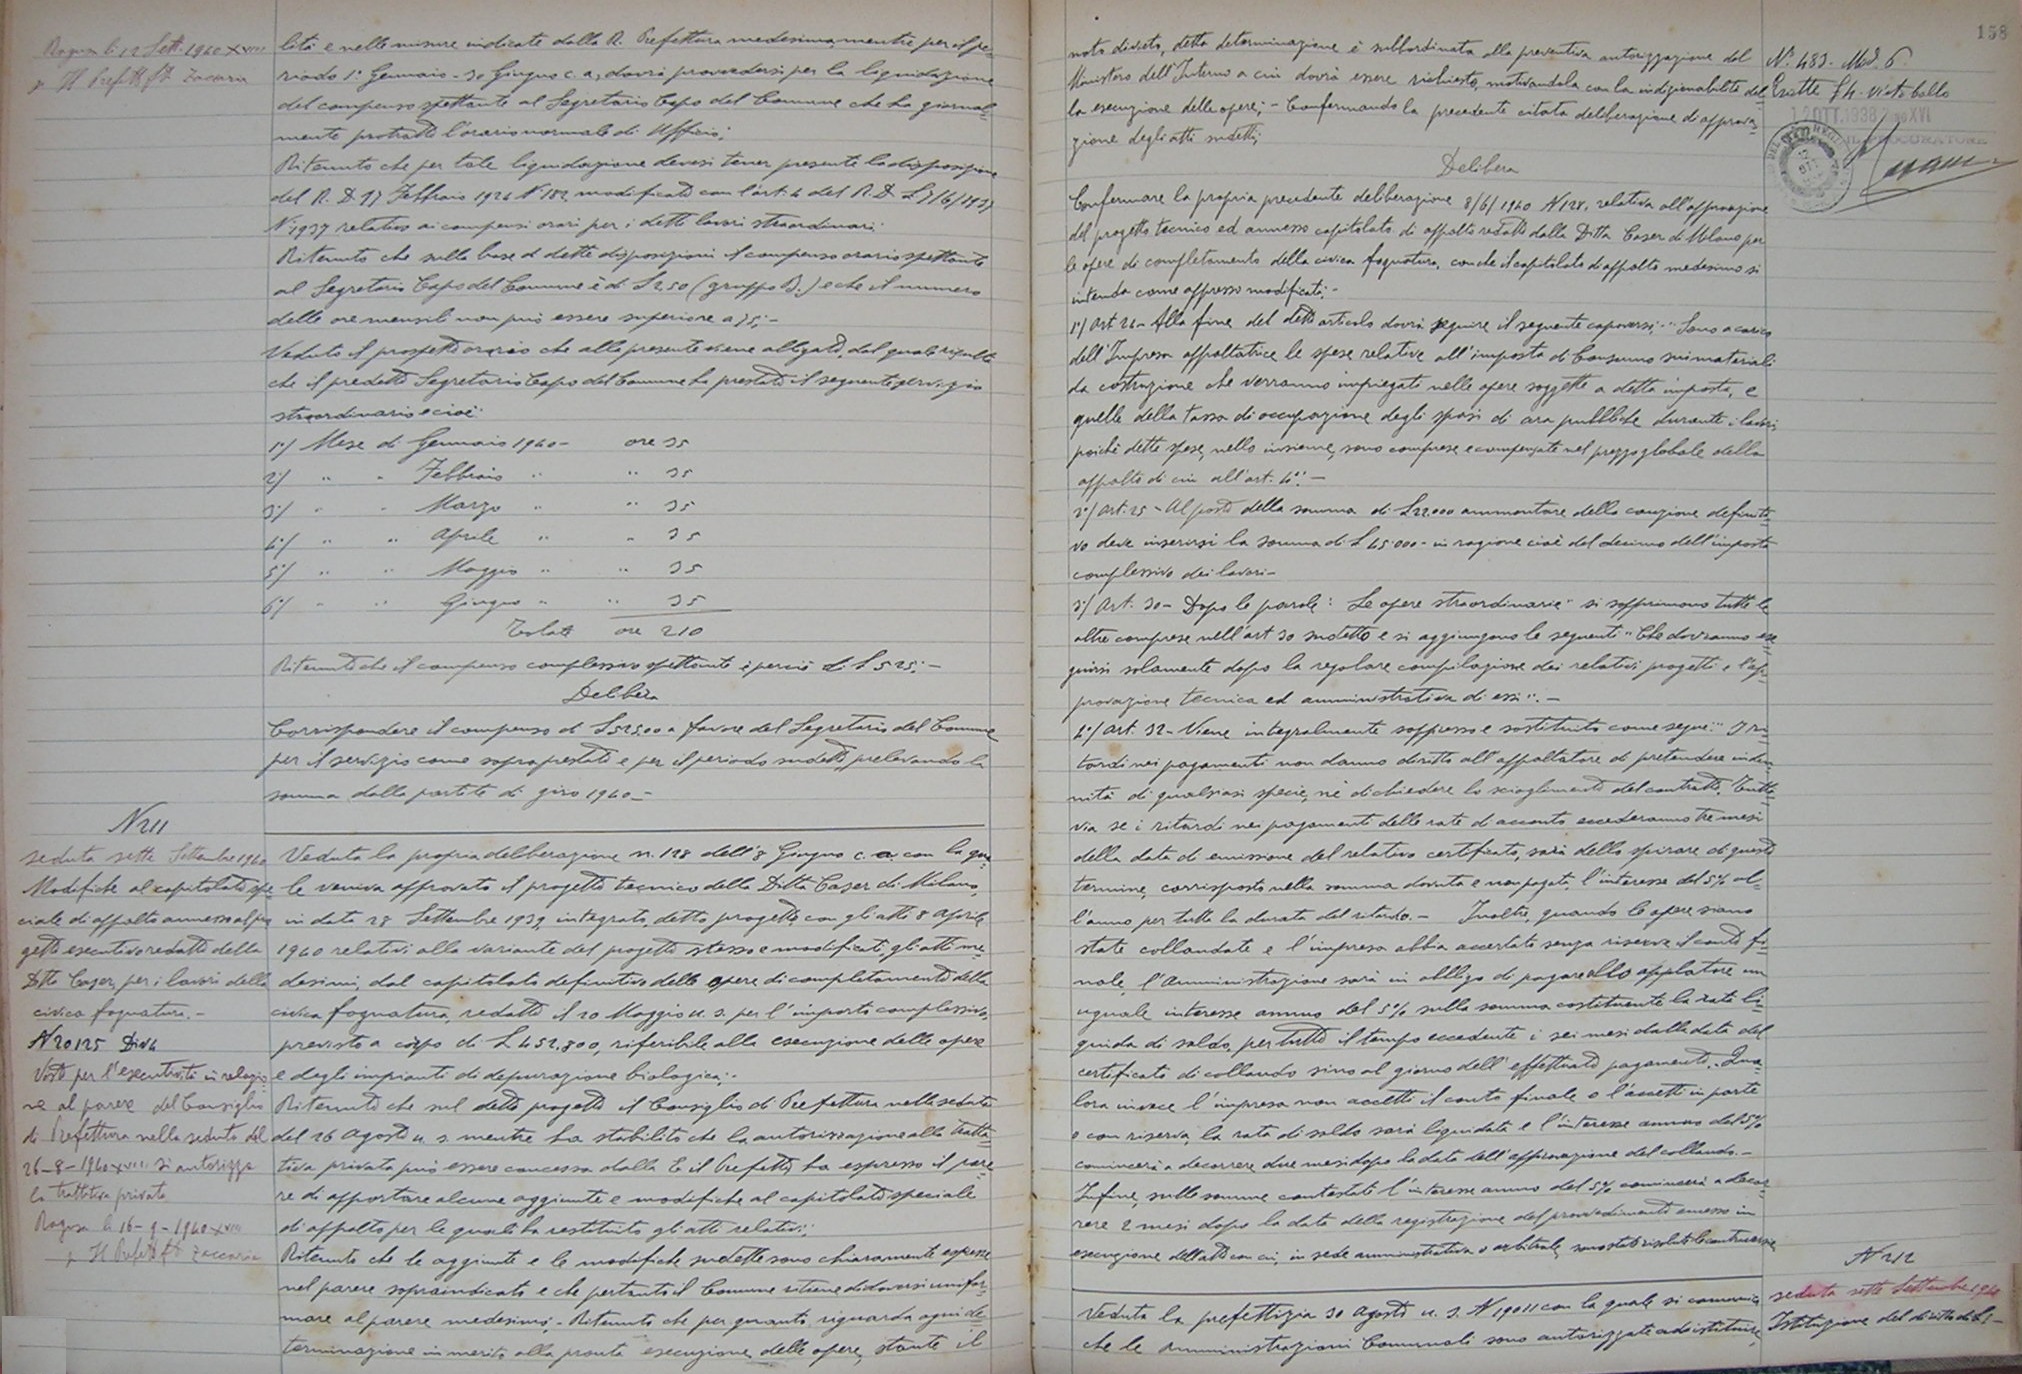 Ragusa li 12 Sett. 1940 XVIII
p. Il Prefetto fto Zaccaria
lità e nelle misure indicate dalla R. Prefettura medesima, mentre per il pe-
riodo 1° Gennaio - 30 Giugno c. a. dovrà provvedersi per la liquidazione
del compenso spettante al Segretario Capo del Comune che ha giornal-
mente protratto l'orario normale di Ufficio;
Ritenuto che per tale liquidazione devesi tener presente la disposizione
del R. D. 17 Febbraio 1924 N 182 modificato con l'art. 4 del R. D. L 7/6/1937
N. 1937 relativo ai compensi orari per i detti lavori straordinari;
Ritenuto che sulla base di dette disposizioni il compenso orario spettante
al Segretario Capo del Comune è di L 2.50 (gruppo B.) e che il numero
delle ore mensili non può essere superiore a 75;-
Veduto il prospetto orario che alla presente viene allegato, dal quale risulta
che il predetto Segretario Capo del Comune ha prestato il seguente servizio
straordinario e cioè:
1°/ Mese di Gennaio 1940 - ore 35
2°/ " " Febbraio " " 35
3°/ " " Marzo " " 35
4°/ " " Aprile " " 35
5°/ " " Maggio " " 35
6°/ " " Giugno " " 35
Totale ore 210
Ritenuto che il compenso complessivo spettante è perciò di L 525;-
Delibera
Corrispondere il compenso di L 525,00 a favore del Segretario del Comune
per il servizio come sopra prestato e per il periodo sudetto, prelevando la
somma dalla partite di giro 1940.-
N 211
seduta sette Settembre 1940
Modifiche al capitolato spe-
ciale di appalto annesso al pro-
getto esecutivo redatto della
Ditta Caser, per i lavori della
civica fognatura.-
N 20125 Div 4
Visto per l'esecutività in relazio-
ne al parere del Consiglio
di Prefettura nella seduta del
26-8-1940 XVIII si autorizza
la trattativa privata
Ragusa li 16-9-1940 XVIII
p. Il Prefetto fto Zaccaria
Veduta la propria deliberazione n. 128 dell'8 Giugno c. a. con la qua-
le veniva approvato il progetto tecnico della Ditta Caser di Milano,
in data 28 Settembre 1939, integrato, detto progetto con gli atti 8 Aprile
1940 relativi alla variante del progetto stesso e modificati, gli atti me-
desimi, dal capitolato definitivo delle opere di completamento della
civica fognatura, redatto il 20 Maggio u. s. per l'importo complessivo,
previsto a corpo di L 452.800, riferibile alla esecuzione delle opere
e degli impianti di depurazione biologica;-
Ritenuto che sul detto progetto il Consiglio di Prefettura nella seduta
del 26 Agosto u. s. mentre ha stabilito che la autorizzazione alla tratta-
tiva privata può essere concessa dalla E il Prefetto, ha espresso il pare-
re di apportare alcune aggiunte e modifiche al capitolato speciale
di appalto per le quali ha restituito gli atti relativi;
Ritenuto che le aggiunte e le modifiche sudette sono chiaramente espresse
nel parere sopraindicato e che pertanto il Comune ritiene di doversi unifor-
mare al parere medesimo;- Ritenuto che per quanto riguarda ogni de-
terminazione in merito alla pronta esecuzione delle opere, stante il
158
noto divieto, detta determinazione è subordinata alla preventiva autorizzazione del
Ministero dell'Interno a cui dovrà essere richiesta, motivandola con la indispensabilità del
la esecuzione delle opere;- Confermando la precedente citata deliberazione di approva-
zione degli atti sudetti;
Delibera
Confermare la propria precedente deliberazione 8/6/1940 N 128, relativa all'approvazione
del progetto tecnico ed annesso capitolato di appalto redatto dalla Ditta Caser di Milano per
le opere di completamento della civica fognatura, con che il capitolato di appalto medesimo si
intenda come appresso modificato:-
1°/ Art 24 - Alla fine del detto articolo dovrà seguire il seguente capoverso: "Sono a carico
dell'Impresa appaltatrice le spese relative all'imposta di Consumo sui materiali
da costruzione che verranno impiegati nelle opere soggette a detta imposta, e
quelle della tassa di occupazione degli spazi di aree pubbliche durante i lavori
poichè dette spese, nello insieme, sono comprese e compensate nel prezzo globale dello
appalto di cui all'art. 4".-
2°/ Art. 25 - Al posto della somma di L 22.000 ammontare della cauzione definiti-
va deve inserirsi la somma di L 45.000 - in ragione cioè del decimo dell'importo
complessivo dei lavori-
3°/ Art. 30 - Dopo le parole: "Le opere straordinarie" si sopprimono tutte le
altre comprese nell'art 30 sudetto e si aggiungono le seguenti "Che dovranno ese-
guirsi solamente dopo la regolare compilazione dei relativi progetti e l'ap-
provazione tecnica ed amministrativa di essi".-
4°/ Art. 32 - Viene integralmente soppresso e sostituito come segue: "I ri-
tardi nei pagamenti non danno diritto all'appaltatore di pretendere inden-
nità di qualsiasi specie, nè di chiedere lo scioglimento del contratto. Tutta-
via se i ritardi nei pagamenti delle rate di acconto eccederanno tre mesi
dalla data di emissione del relativo certificato, sarà dallo spirare di questo
termine, corrisposto, nella somma dovuta e non pagata, l'interesse del 5% al-
l'anno per tutta la durata del ritardo.- Inoltre, quando le opere siano
state collaudate e l'impresa abbia accettato senza riserva il conto fi-
nale, l'Amministrazione sarà in obbligo di pagare allo appaltatore un
uguale interesse annuo del 5% sulla somma costituente la rata li-
quida di saldo, per tutto il tempo eccedente i sei mesi dalla data del
certificato di collaudo sino al giorno dell'effettuato pagamento. Qua-
lora invece l'impresa non accetti il conto finale o l'accetti in parte
o con riserva, la rata di saldo sarà liquidata e l'interesse annuo del 5%
comincerà a decorrere due mesi dopo la data dell'approvazione del collaudo.-
Infine, sulle somme contestate l'interesse annuo del 5% comincerà a decor-
rere 2 mesi dopo la data della registrazione del provvedimento emesso in
esecuzione dell'atto con cui, in sede amministrativa o arbitrale, sono state risolute le controversie
Veduta la prefettizia 30 Agosto u. s. N 19011 con la quale si comunica
che le Amministrazioni Comunali sono autorizzate ad istituire,
N° 483. Mod. 6
Esatte £ 4. visto bollo
OTT. 1938 XVI
IL PROCURATORE
N 212
seduta sette Settembre 1940
Istituzione del diritto di li-